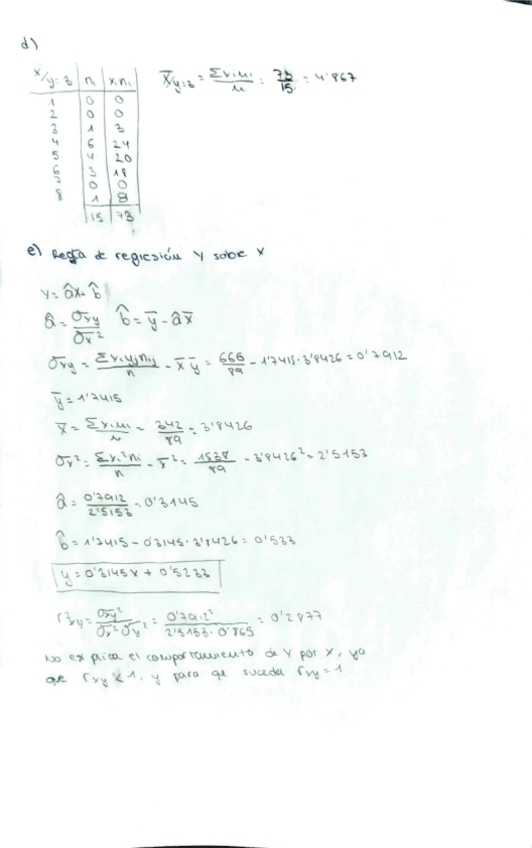 d)
x/y=3 | ni | xi ni
x̄y=3 = Σxini/n = 73/15 = 4'867
1 0 0
2 0 0
3 1 3
4 6 24
5 4 20
6 3 18
7 0 0
8 1 8
15 73
e) Recta de regresión Y sobe X
y = âx + b̂
â = σxy/σx² b̂ = ȳ - âx̄
σxy = Σxiyjnij/n - x̄ȳ = 666/89 - 1'7415·3'8426 = 0'7912
ȳ = 1'7415
x̄ = Σxini/n = 342/89 = 3'8426
σx² = Σxi²ni/n - x̄² = 1538/89 - 3'8426² = 2'5153
â = 0'7912/2'5153 = 0'3145
b̂ = 1'7415 - 0'3145·3'8426 = 0'533
y = 0'3145x + 0'5233
r²xy = σxy²/σx²σy² = 0'7912²/2'5153·0'865 = 0'2877
No explica el comportamiento de Y por X, ya
que rxy < 1, y para qe suceda rxy = 1